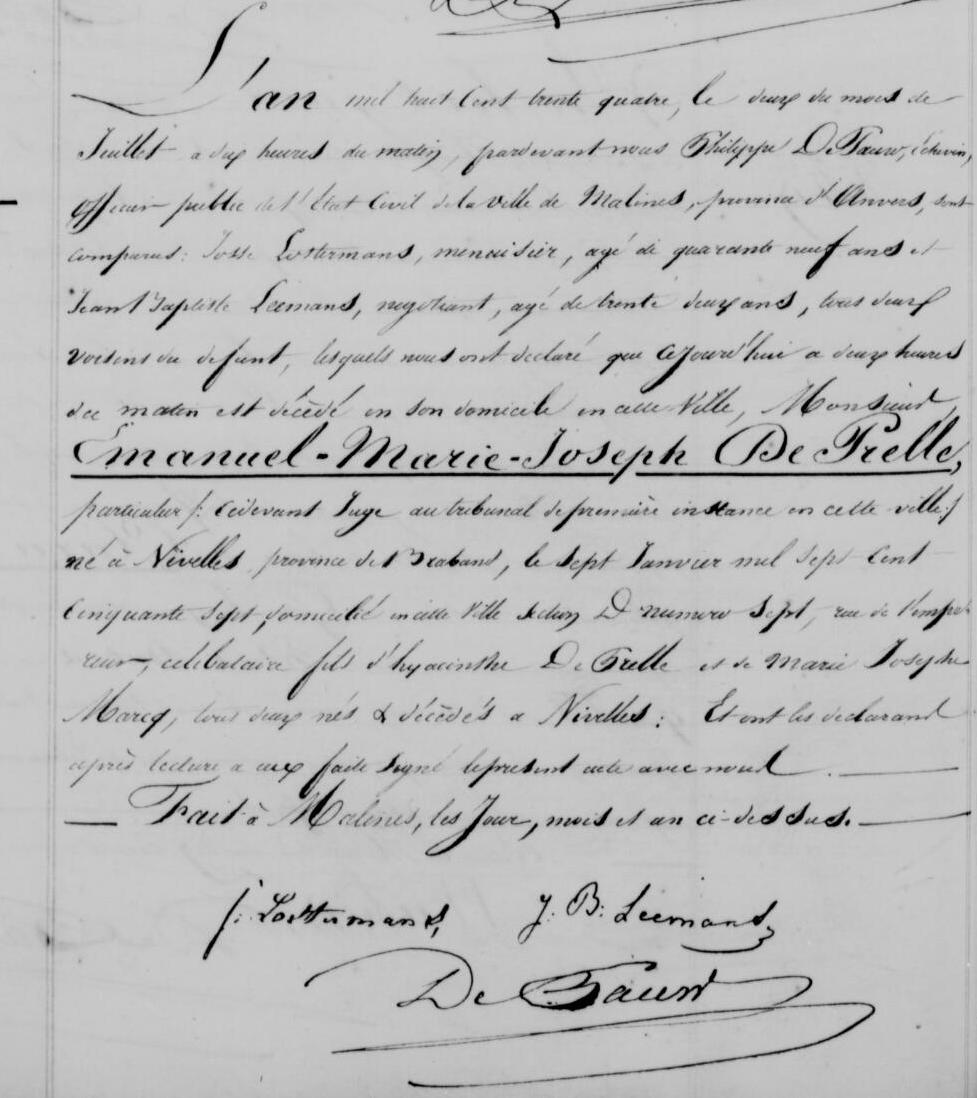 L'an mil huit Cent trente quatre, le deux du mois de
Juillet a dix heures du matin, pardevant nous Philippe De Pauw, Echevin,
officier public de l'Etat Civil de la ville de Malines, province d'Anvers, sont
comparus: Josse Lostermans, menuisier, agé de quarante neuf ans et
Jean Baptiste Leemans, negotiant, agé de trente deux ans, tous deux
voisins du defunt, lesquels nous ont declaré que cejourd'hui a deux heures
du matin est décédé en son domicile en cette Ville, Monsieur
Emanuel-Marie-Joseph De Prelle,
particulier /: cidevant Juge au tribunal de premiere instance en cette ville:/
né à Nivelles, province de Braband, le sept Janvier mil sept Cent
cinquante sept, domicilié en cette Ville section D numero sept, rue de l'empe-
reur, celibataire fils d'hyacinthe De Prelle et de Marie Josephe
Marcq, tous deux nés & décèdés a Nivelles: Et ont les declarand
après lecture a eux faite signé le present acte avec nous.
Fait à Malines, les Jour, mois et an ci-dessus.
J: Lostermans, J: B: Leemans
De Pauw